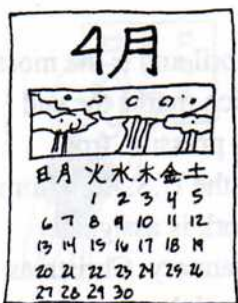 4月
日月火水木金土
1 2 3 4 5
6 7 8 9 10 11 12
13 14 15 16 17 18 19
20 21 22 23 24 25 26
27 28 29 30